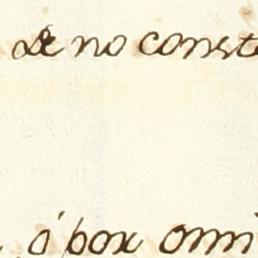 de no const
ó box omi